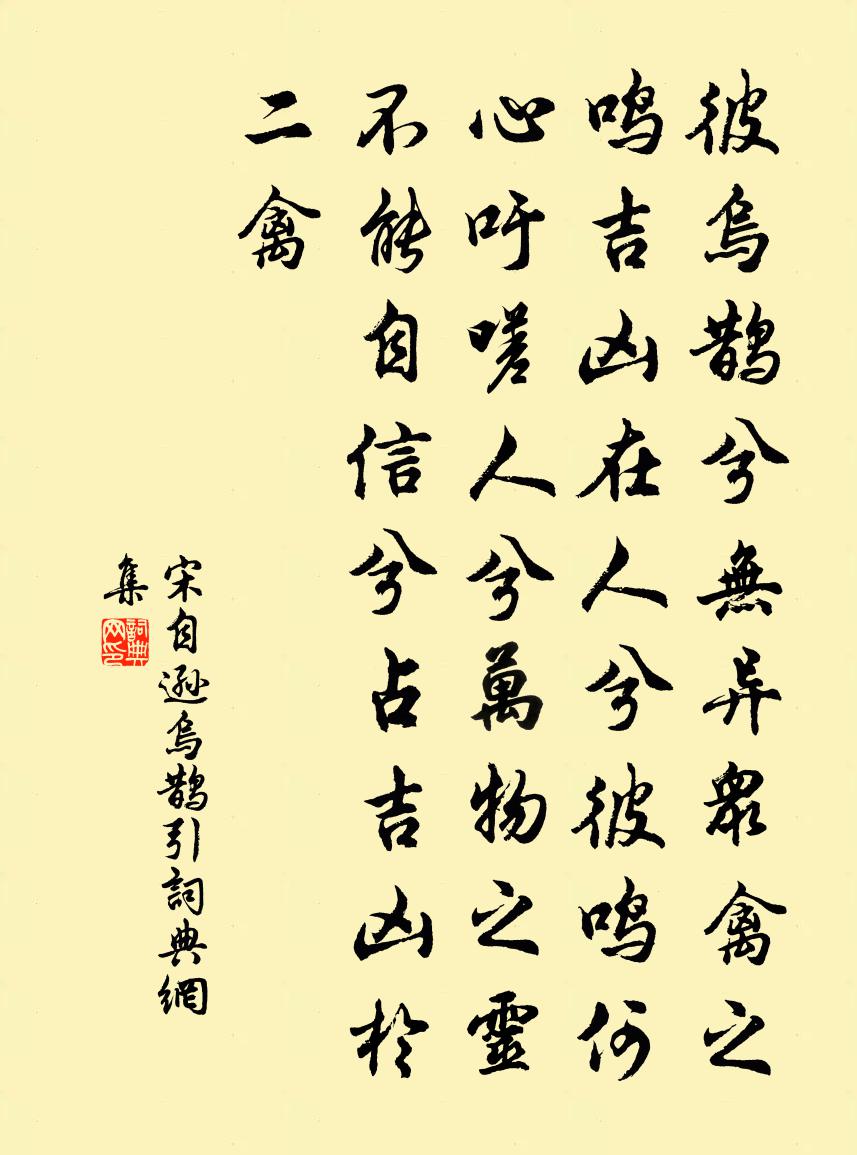 彼烏鵲兮無异衆禽之
鳴吉凶在人兮彼鳴何
心吁嗟人兮萬物之靈
不能自信兮占吉凶於
二禽
宋自遜烏鵲引詞典網
集
詞典
网印